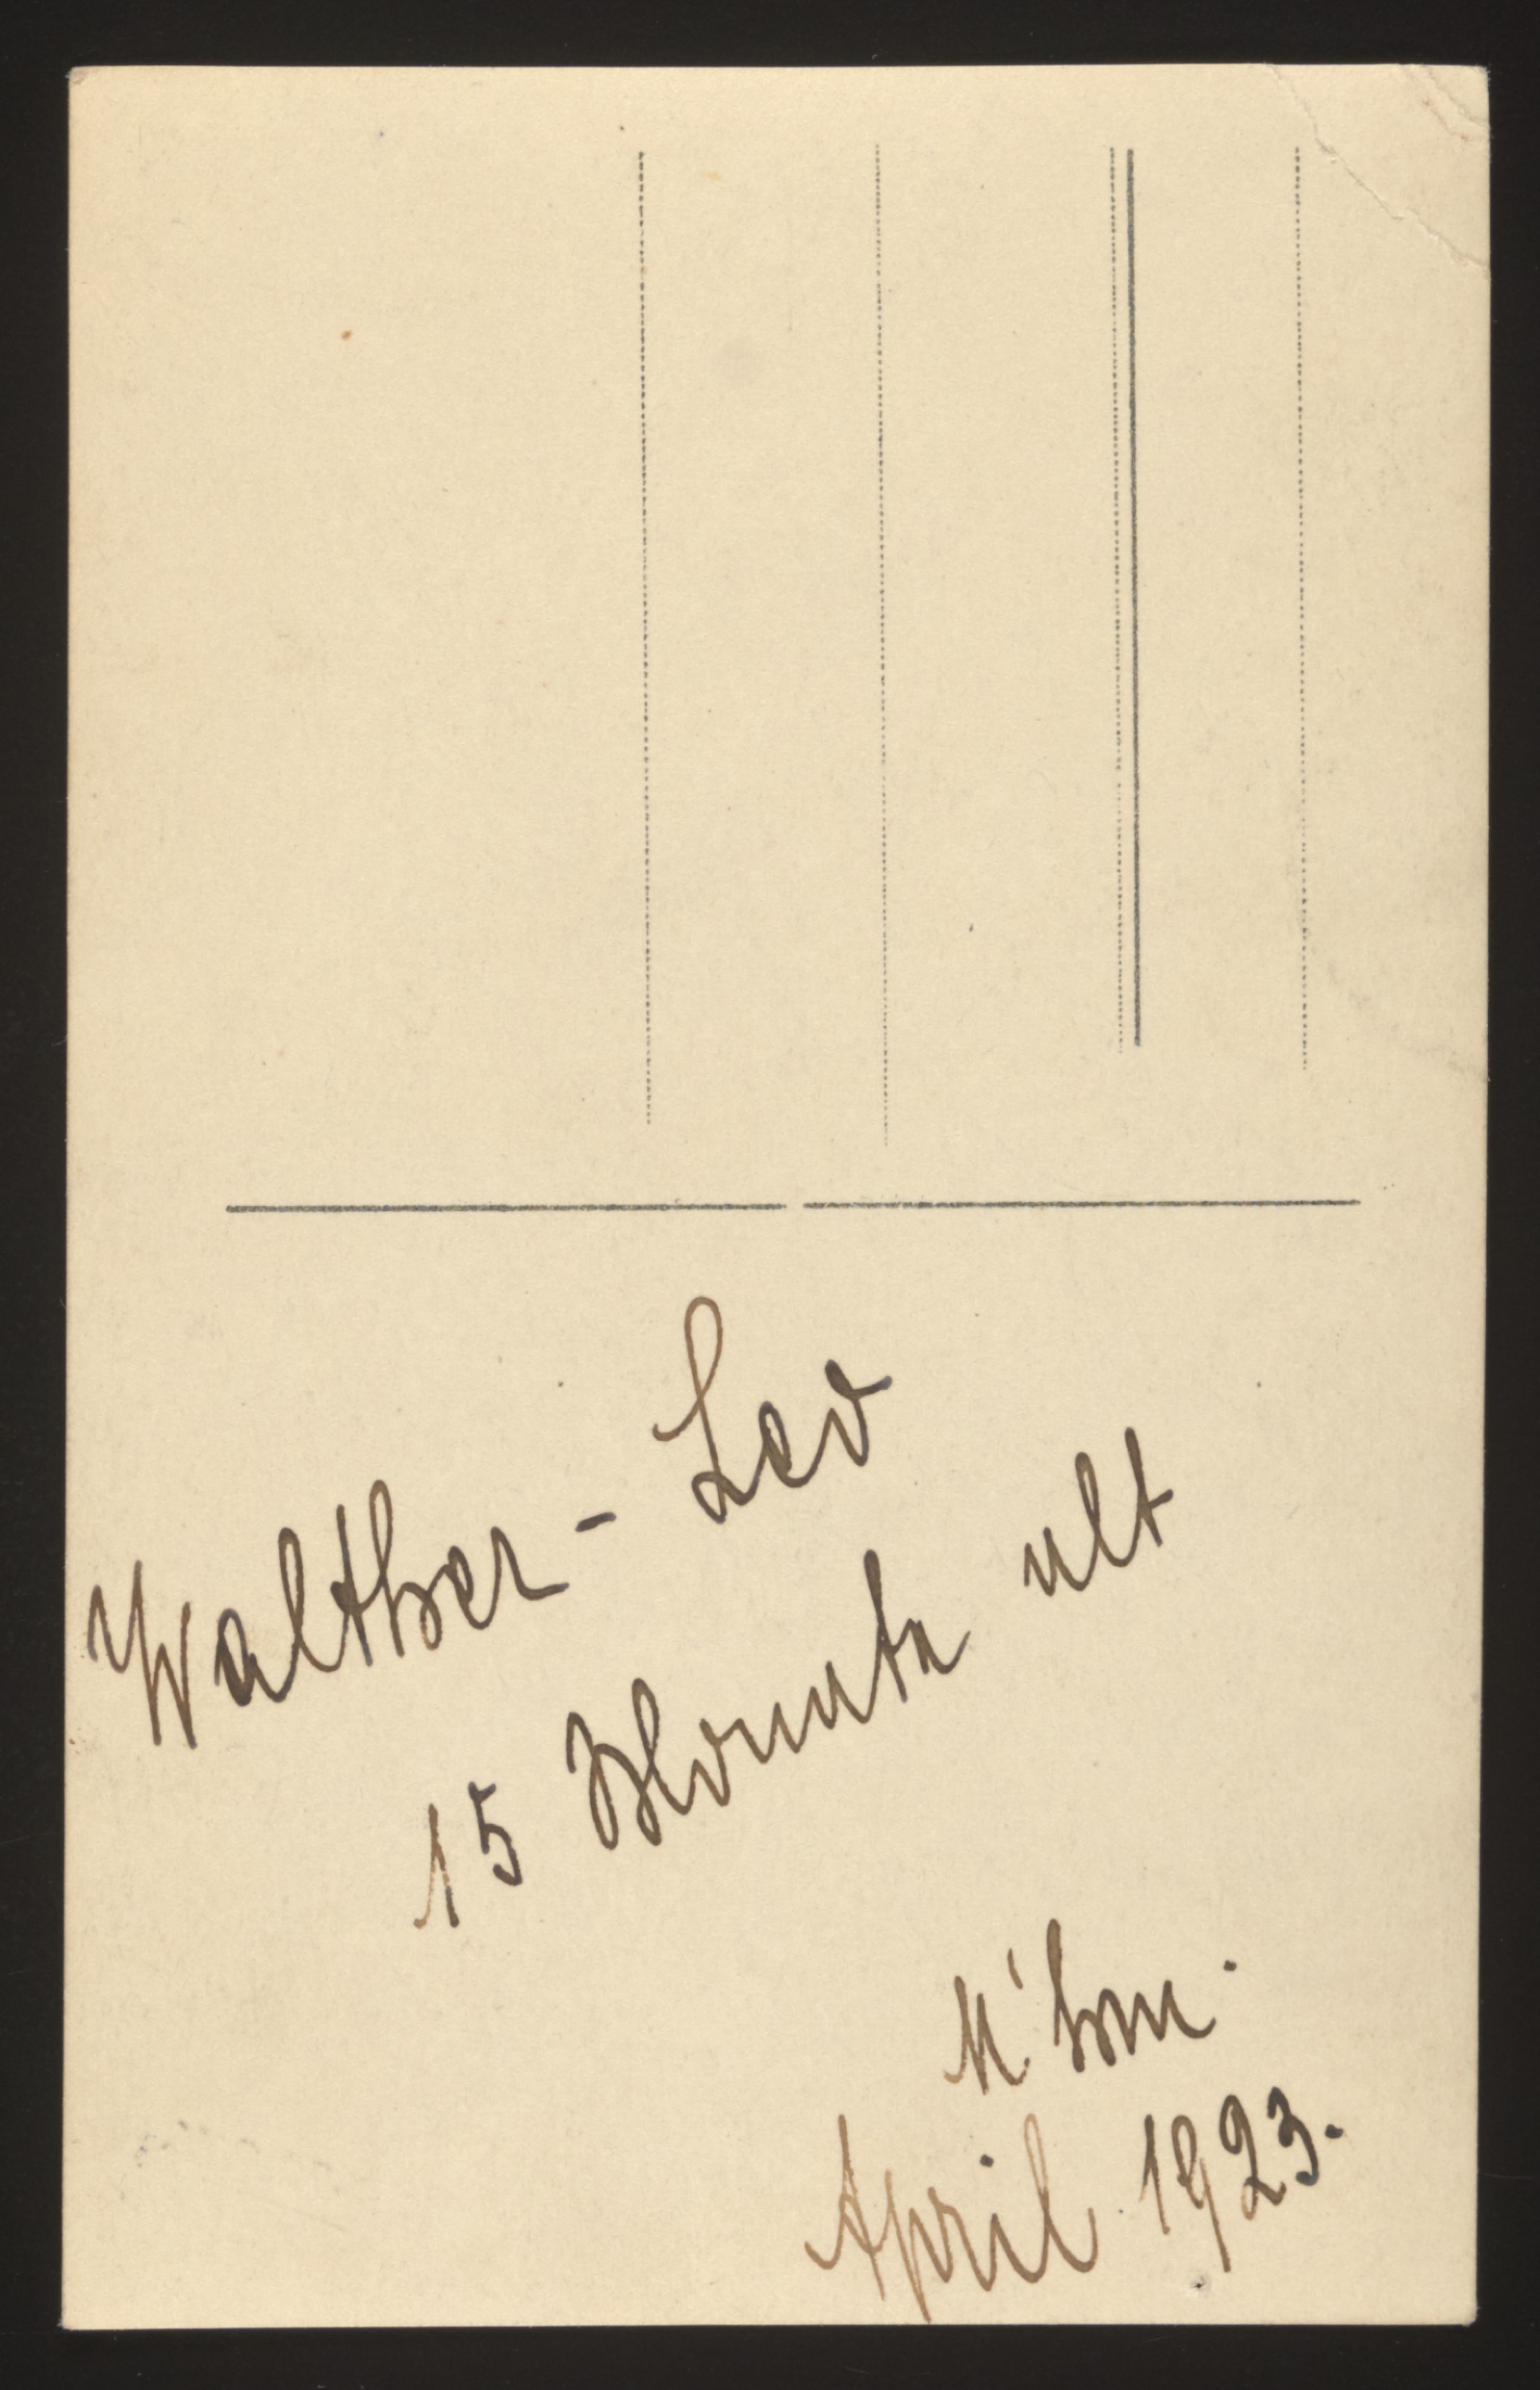 Walther - Leo
15 Monate alt
M'hm.
April 1923.